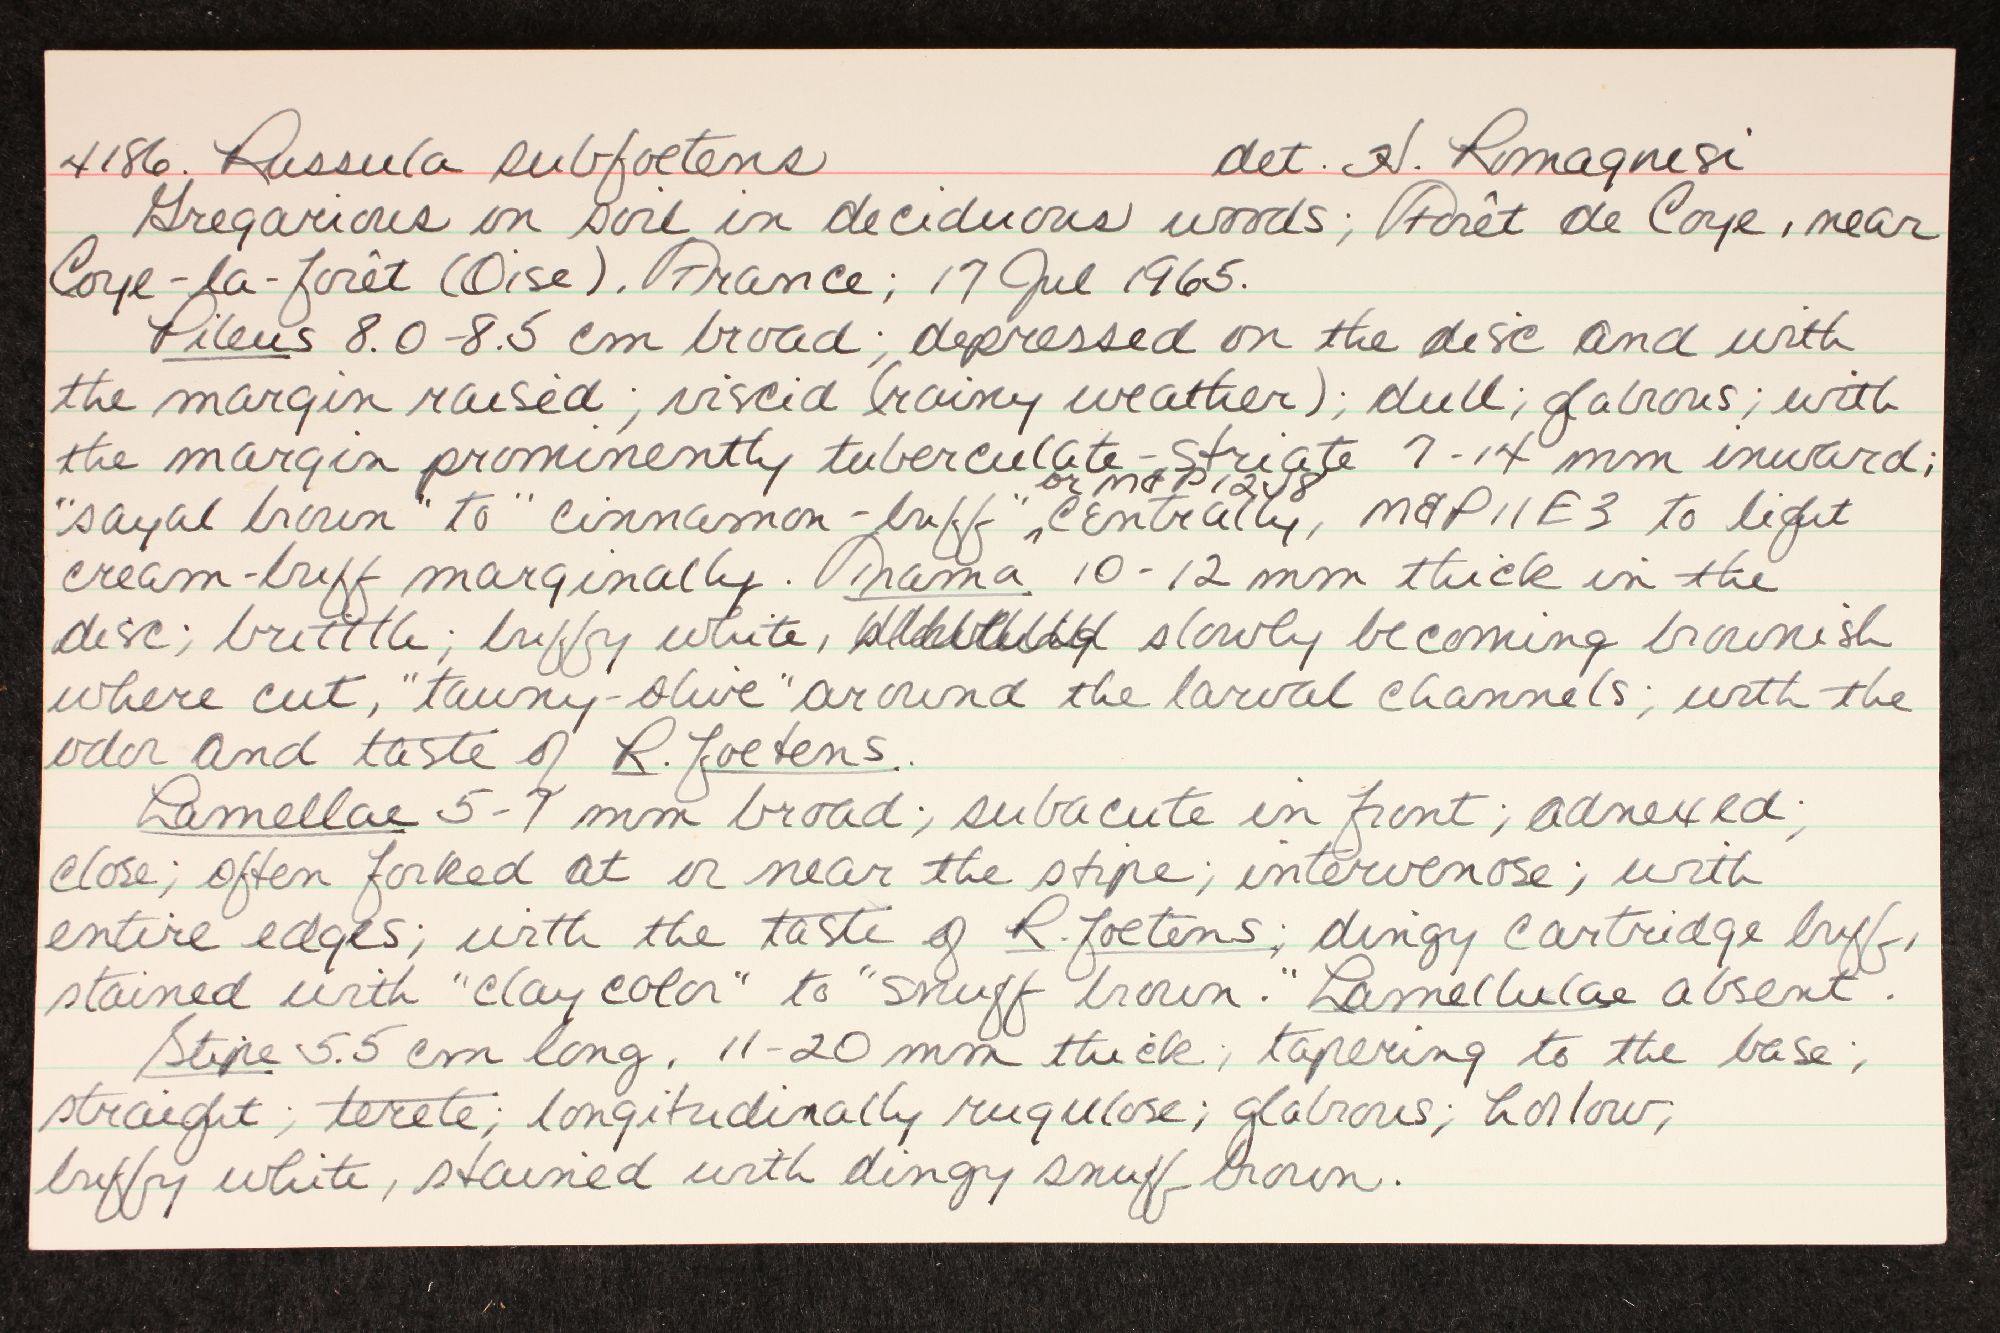 4186. Russula subfoetens det. H. Romagnesi
Gregarious on soil in deciduous woods; Forêt de Coye, near
Coye-la-forêt (Oise), France; 17 Jul 1965.
Pileus 8.0-8.5 cm broad; depressed on the disc and with
the margin raised; viscid (rainy weather); dull; glabrous; with
the margin prominently tuberculate-striate 7-14 mm inward;
or M&P 12J8
"sayal brown" to "cinnamon-buff", centrally, M&P 11E3 to light
cream-buff marginally. Trama 10-12 mm thick in the
disc; brittle; buffy white, slowly becoming brownish
where cut, "tawny-olive" around the larval channels; with the
odor and taste of R. foetens.
Lamellae 5-7 mm broad; subacute in front; adnexed;
close; often forked at or near the stipe; intervenose; with
entire edges; with the taste of R. foetens; dingy cartridge buff,
stained with "clay color" to "snuff brown." Lamellulae absent.
Stipe 5.5 cm long, 11-20 mm thick; tapering to the base;
straight; terete; longitudinally rugulose; glabrous; hollow;
buffy white, stained with dingy snuff brown.